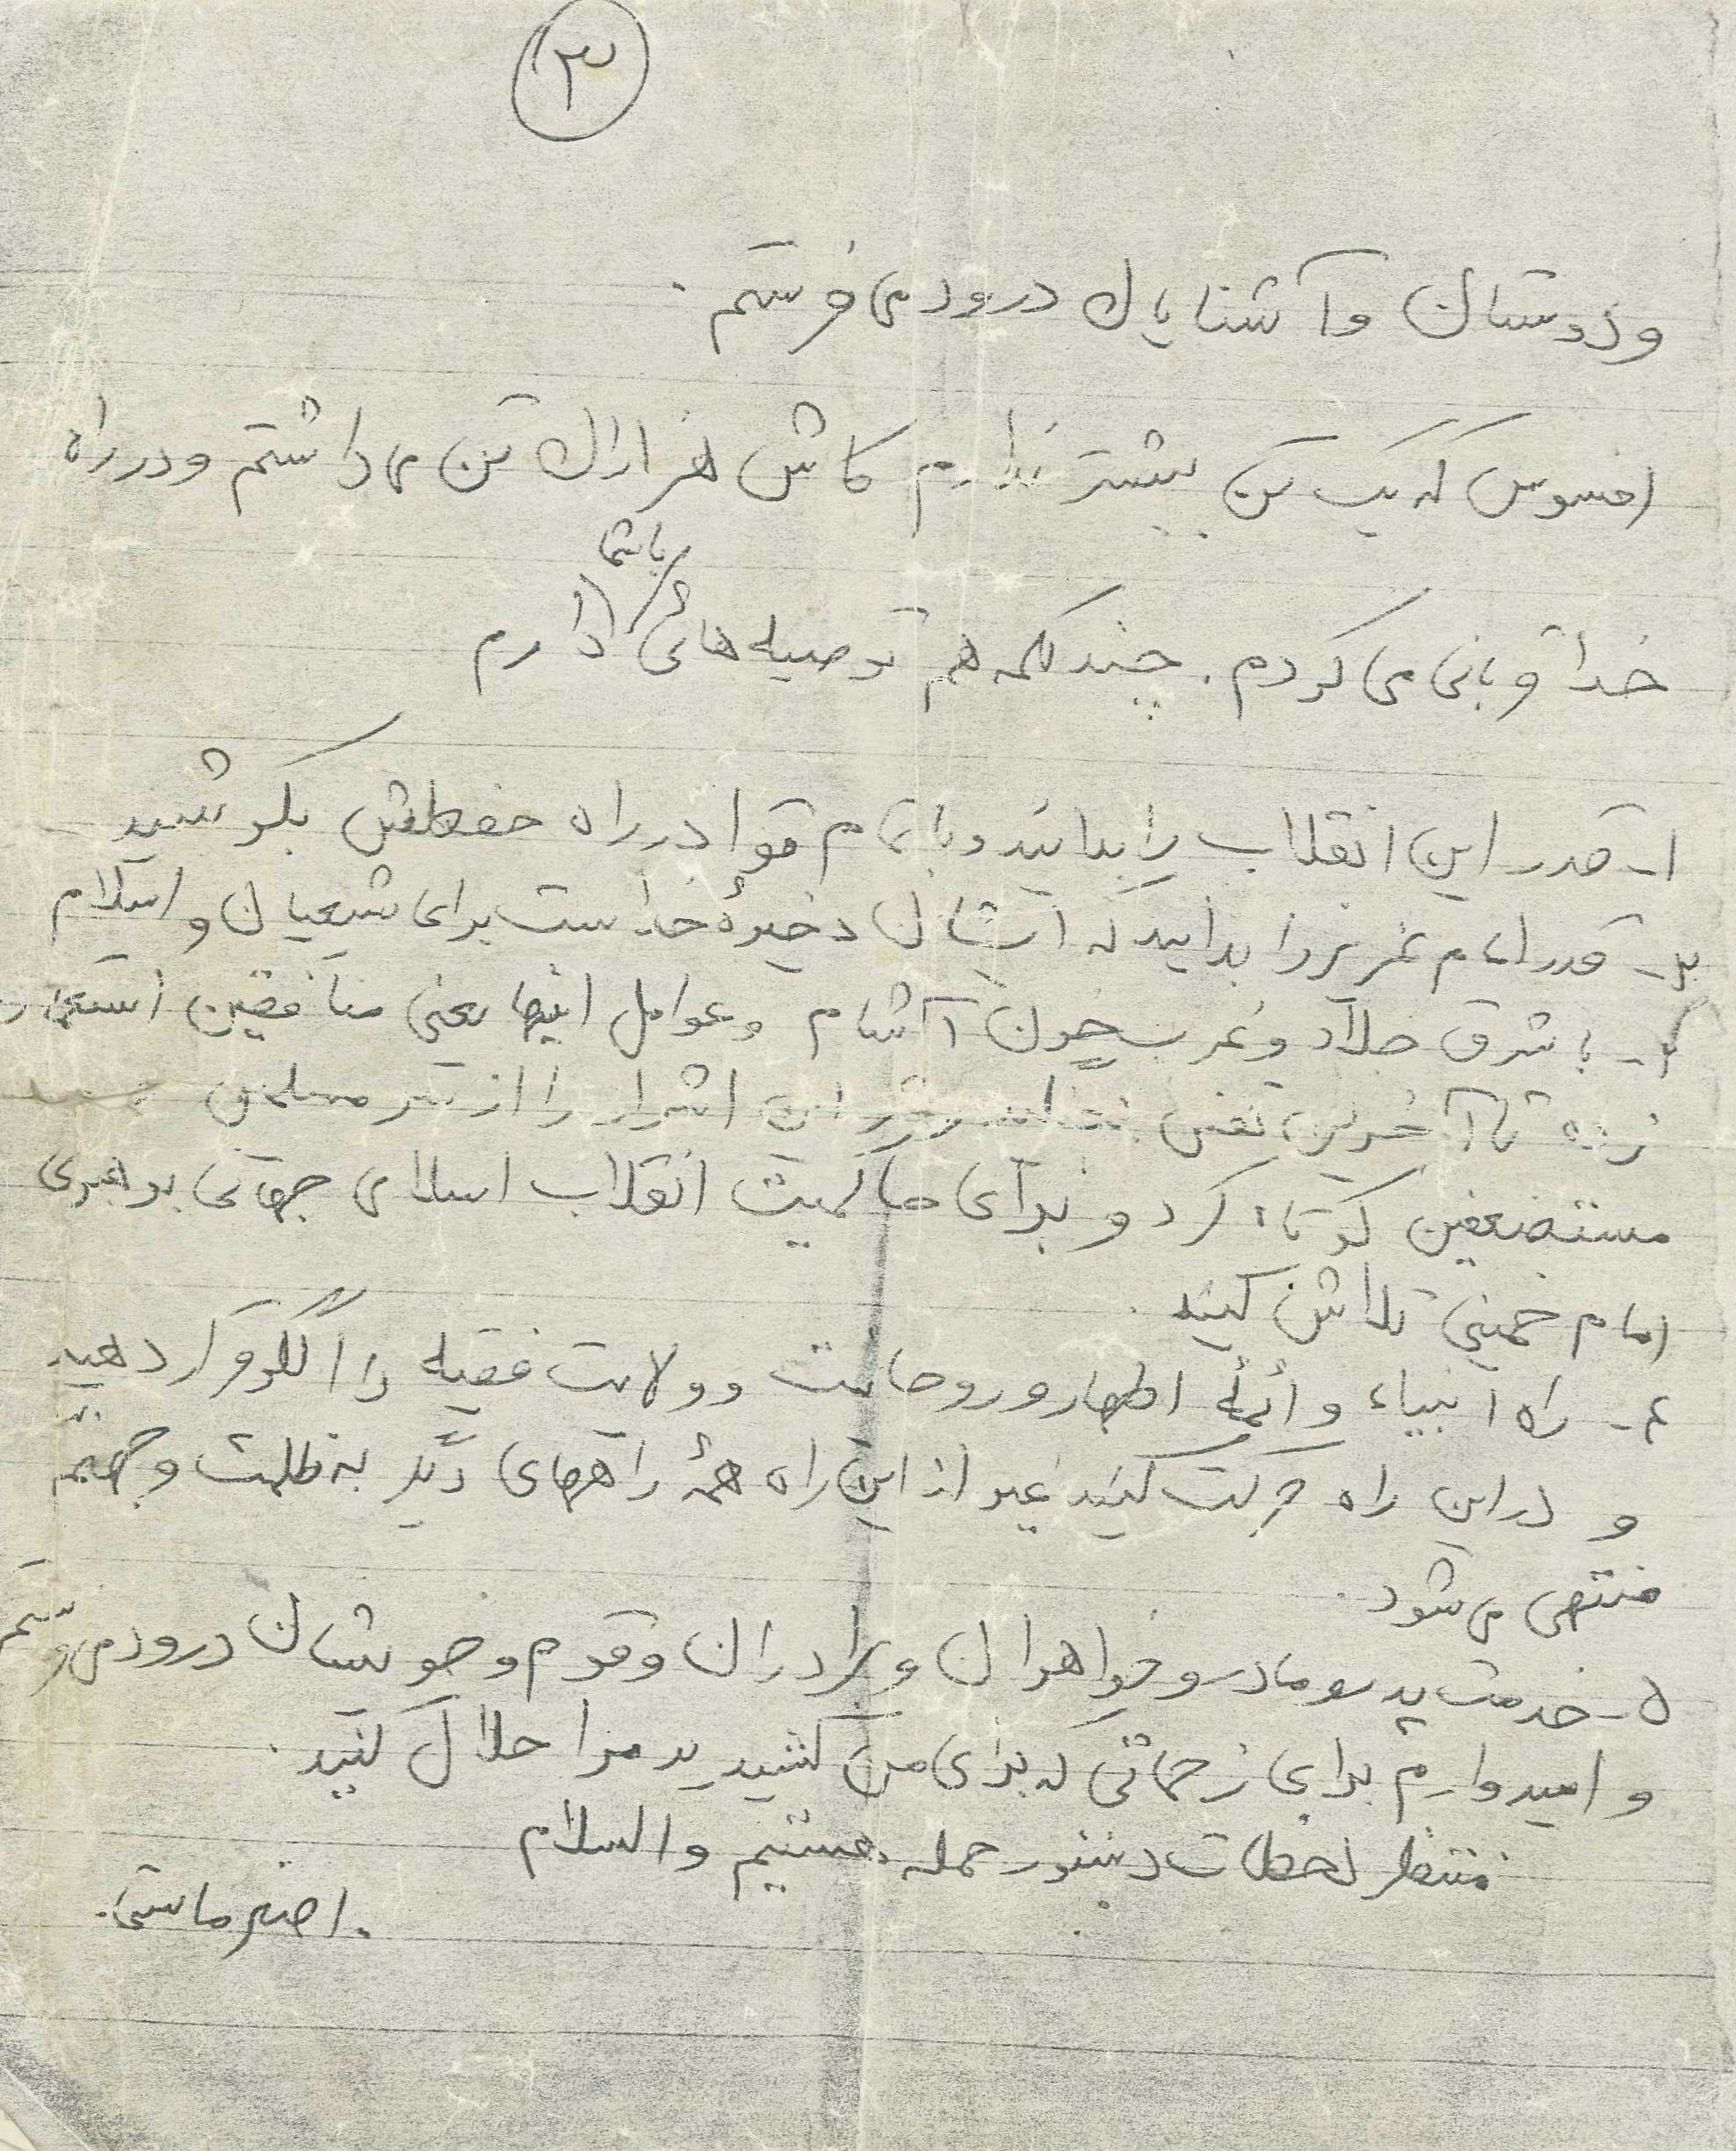 ۳
و دوستان و آشنایان درود می فرستم.
افسوس که یک تن بیشتر ندارم کاش هزاران تن می داشتم و در راه
باشما
خدا قربانی می کردم. چند کلمه هم توصیه هائی دارم
۱- قدر این انقلاب را بدانید و با تمام قوا در راه حفظش بکوشید
۲- قدر امام عزیز را بدانید که ایشان ذخیرهٔ خداست برای شیعیان و اسلام
۳- با شرق جلاد و غرب خون آشام و عوامل اینها یعنی منافقین استعمار
تا آخرین نفس این اشرار را از سر مسلمین
مستضعفین کوتاه کرد و برای حاکمیت انقلاب اسلامی جهانی برهبری
امام خمینی تلاش کنید.
۴- راه انبیاء و ائمهٔ اطهار و روحانیت و ولایت فقیه را الگو قرار دهید
و در این راه حرکت کنید غیر از این راه همهٔ راههای دیگر به ظلمت و جهنم
منتهی می شود.
۵- خدمت پدر و مادر و خواهران و برادران و قوم و خویشان درود می فرستم
و امیدوارم برای زحماتی که برای من کشیدید مرا حلال کنید.
منتظر لحظات دستور حمله هستیم والسلام
اصغر